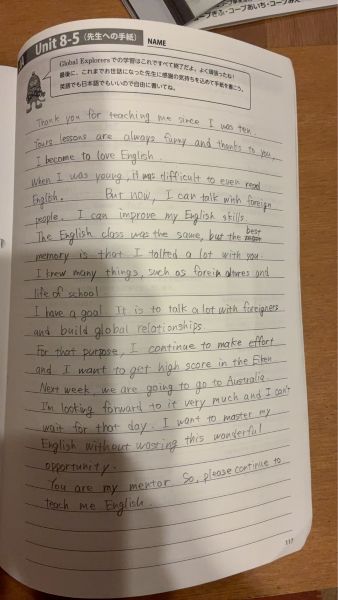 ープぎふ・コープあいち・コープみえ
Unit 8-5 (先生への手紙)
NAME
Global Explorers での学習はこれですべて終了だよ。よく頑張ったね！
最後に、これまでお世話になった先生に感謝の気持ちを込めて手紙を書こう。
英語でも日本語でもいいので自由に書いてね。
Thank you for teaching me since I was ten.
Yours lessons are always funny and thanks to you,
I become to love English.
When I was young, it was difficult to even read
English. But now, I can talk with foreign
people. I can improve my English skills.
The English class was the same, but the best
memory is that I talked a lot with you
I knew many things, such as forein and
life of school
I have a goal. It is to talk a lot with foreigners
and build global relationships
For that purpose, I continue to make effort
and I want to get high score in the Eiken
Next week, we are going to go to Australia
I'm looking forward to it very much and I can't
wait for that day. I want to master my
English without wasting this wonderful
opportunity.
You are my mentor. So, please continue to
teach me English.
117